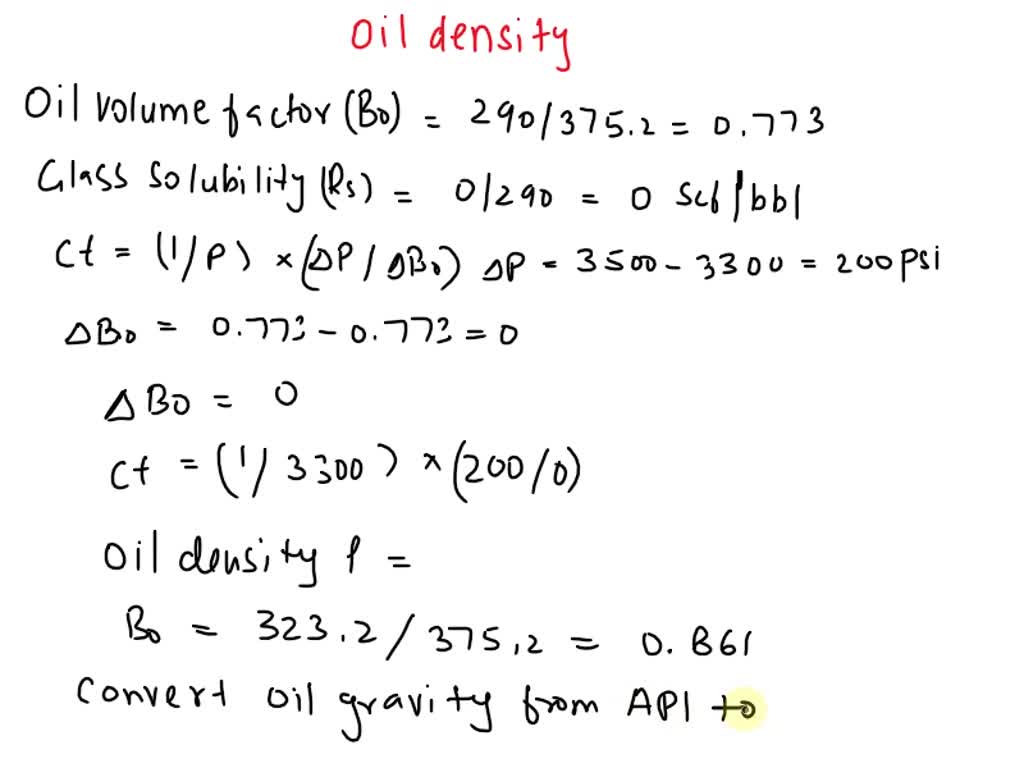 Oil density
Oil volume factor (Bo) = 290/375.2 = 0.773
Glass solubility (Rs) = 0/290 = 0 Scf/bbl
Ct = (1/P) × (ΔP/ΔBo) ΔP = 3500 - 3300 = 200 psi
ΔBo = 0.773 - 0.773 = 0
ΔBo = 0
Ct = (1/3300) × (200/0)
Oil density ρ =
Bo = 323.2/375.2 = 0.861
Convert oil gravity from API to